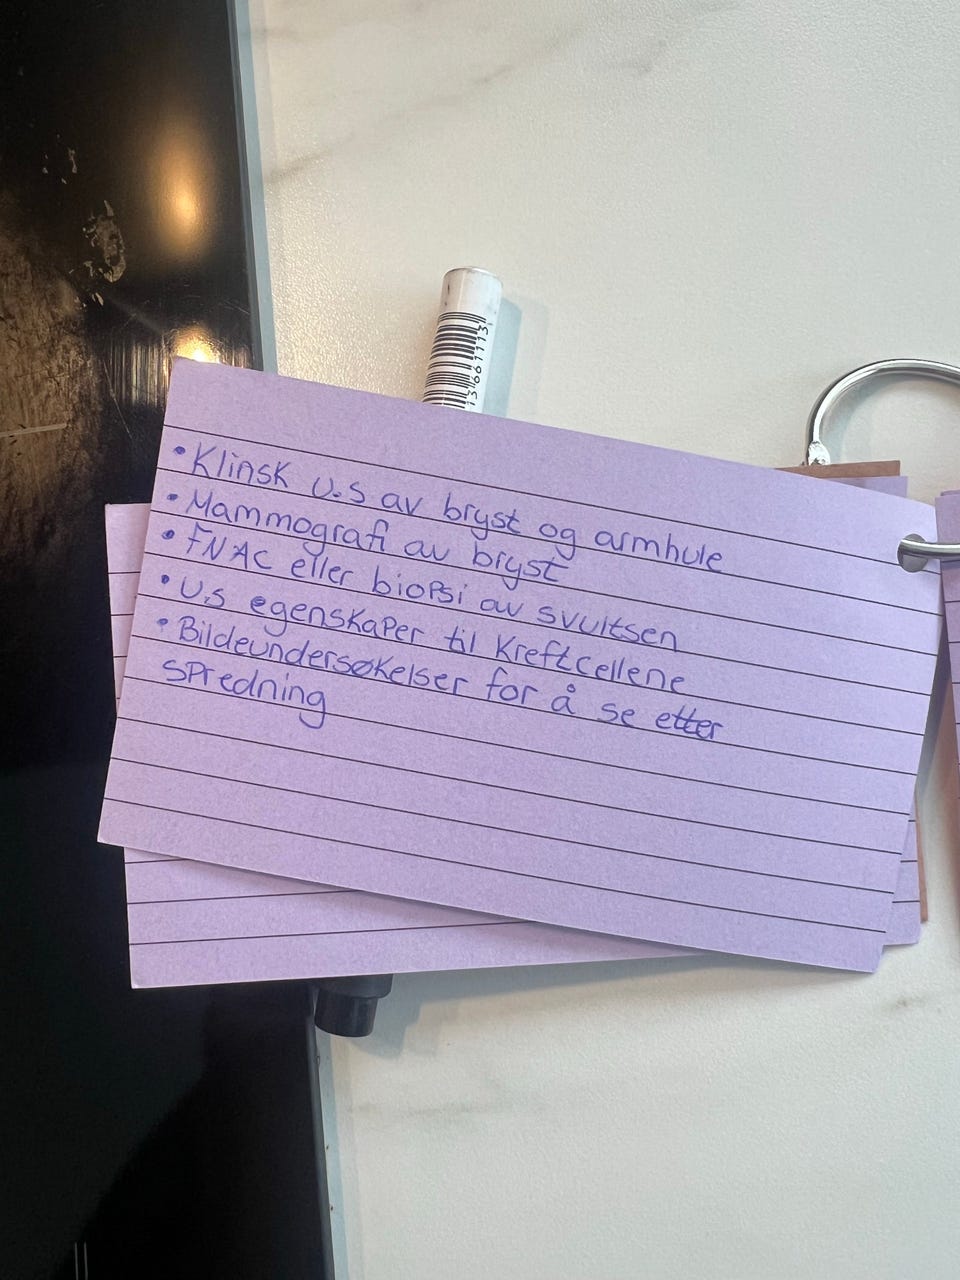 13661113
• Klinsk U.S av bryst og armhule
• Mammografi av bryst
• FNAC eller biopsi av svultsen
• U.S egenskaper til Kreftcellene
• Bildeundersøkelser for å se etter
spredning